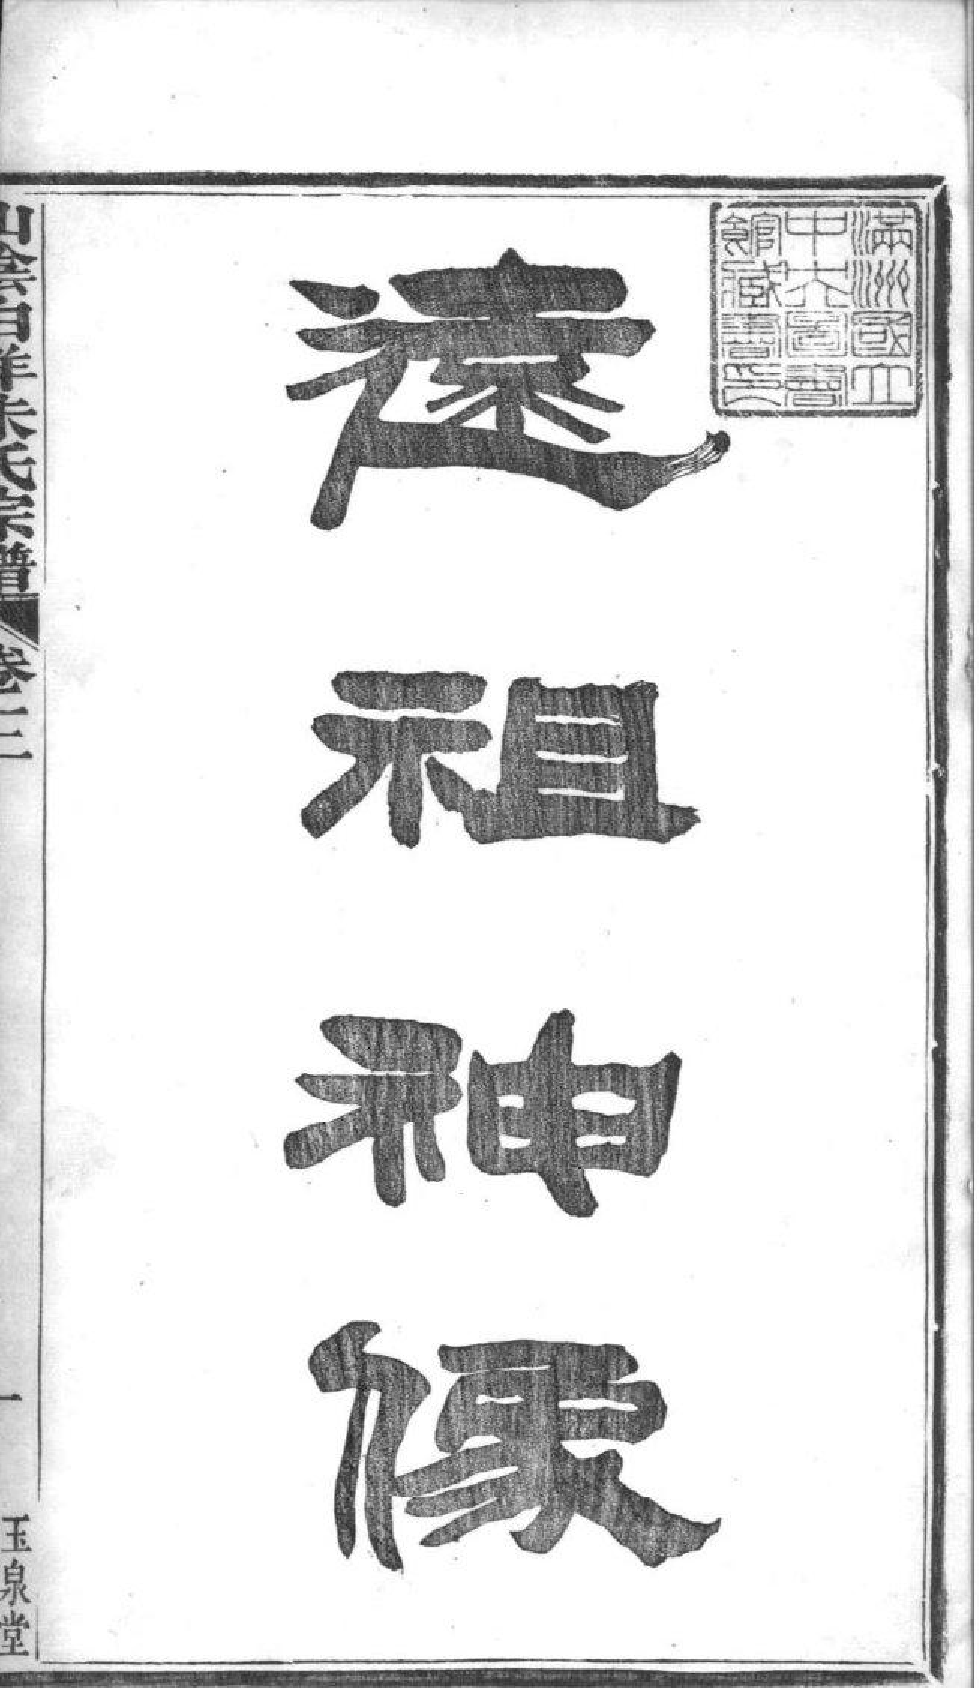 滿洲國立
中央圖書
館藏書印
遠祖神像
山陰白洋朱氏宗譜 卷二二
一
玉泉堂